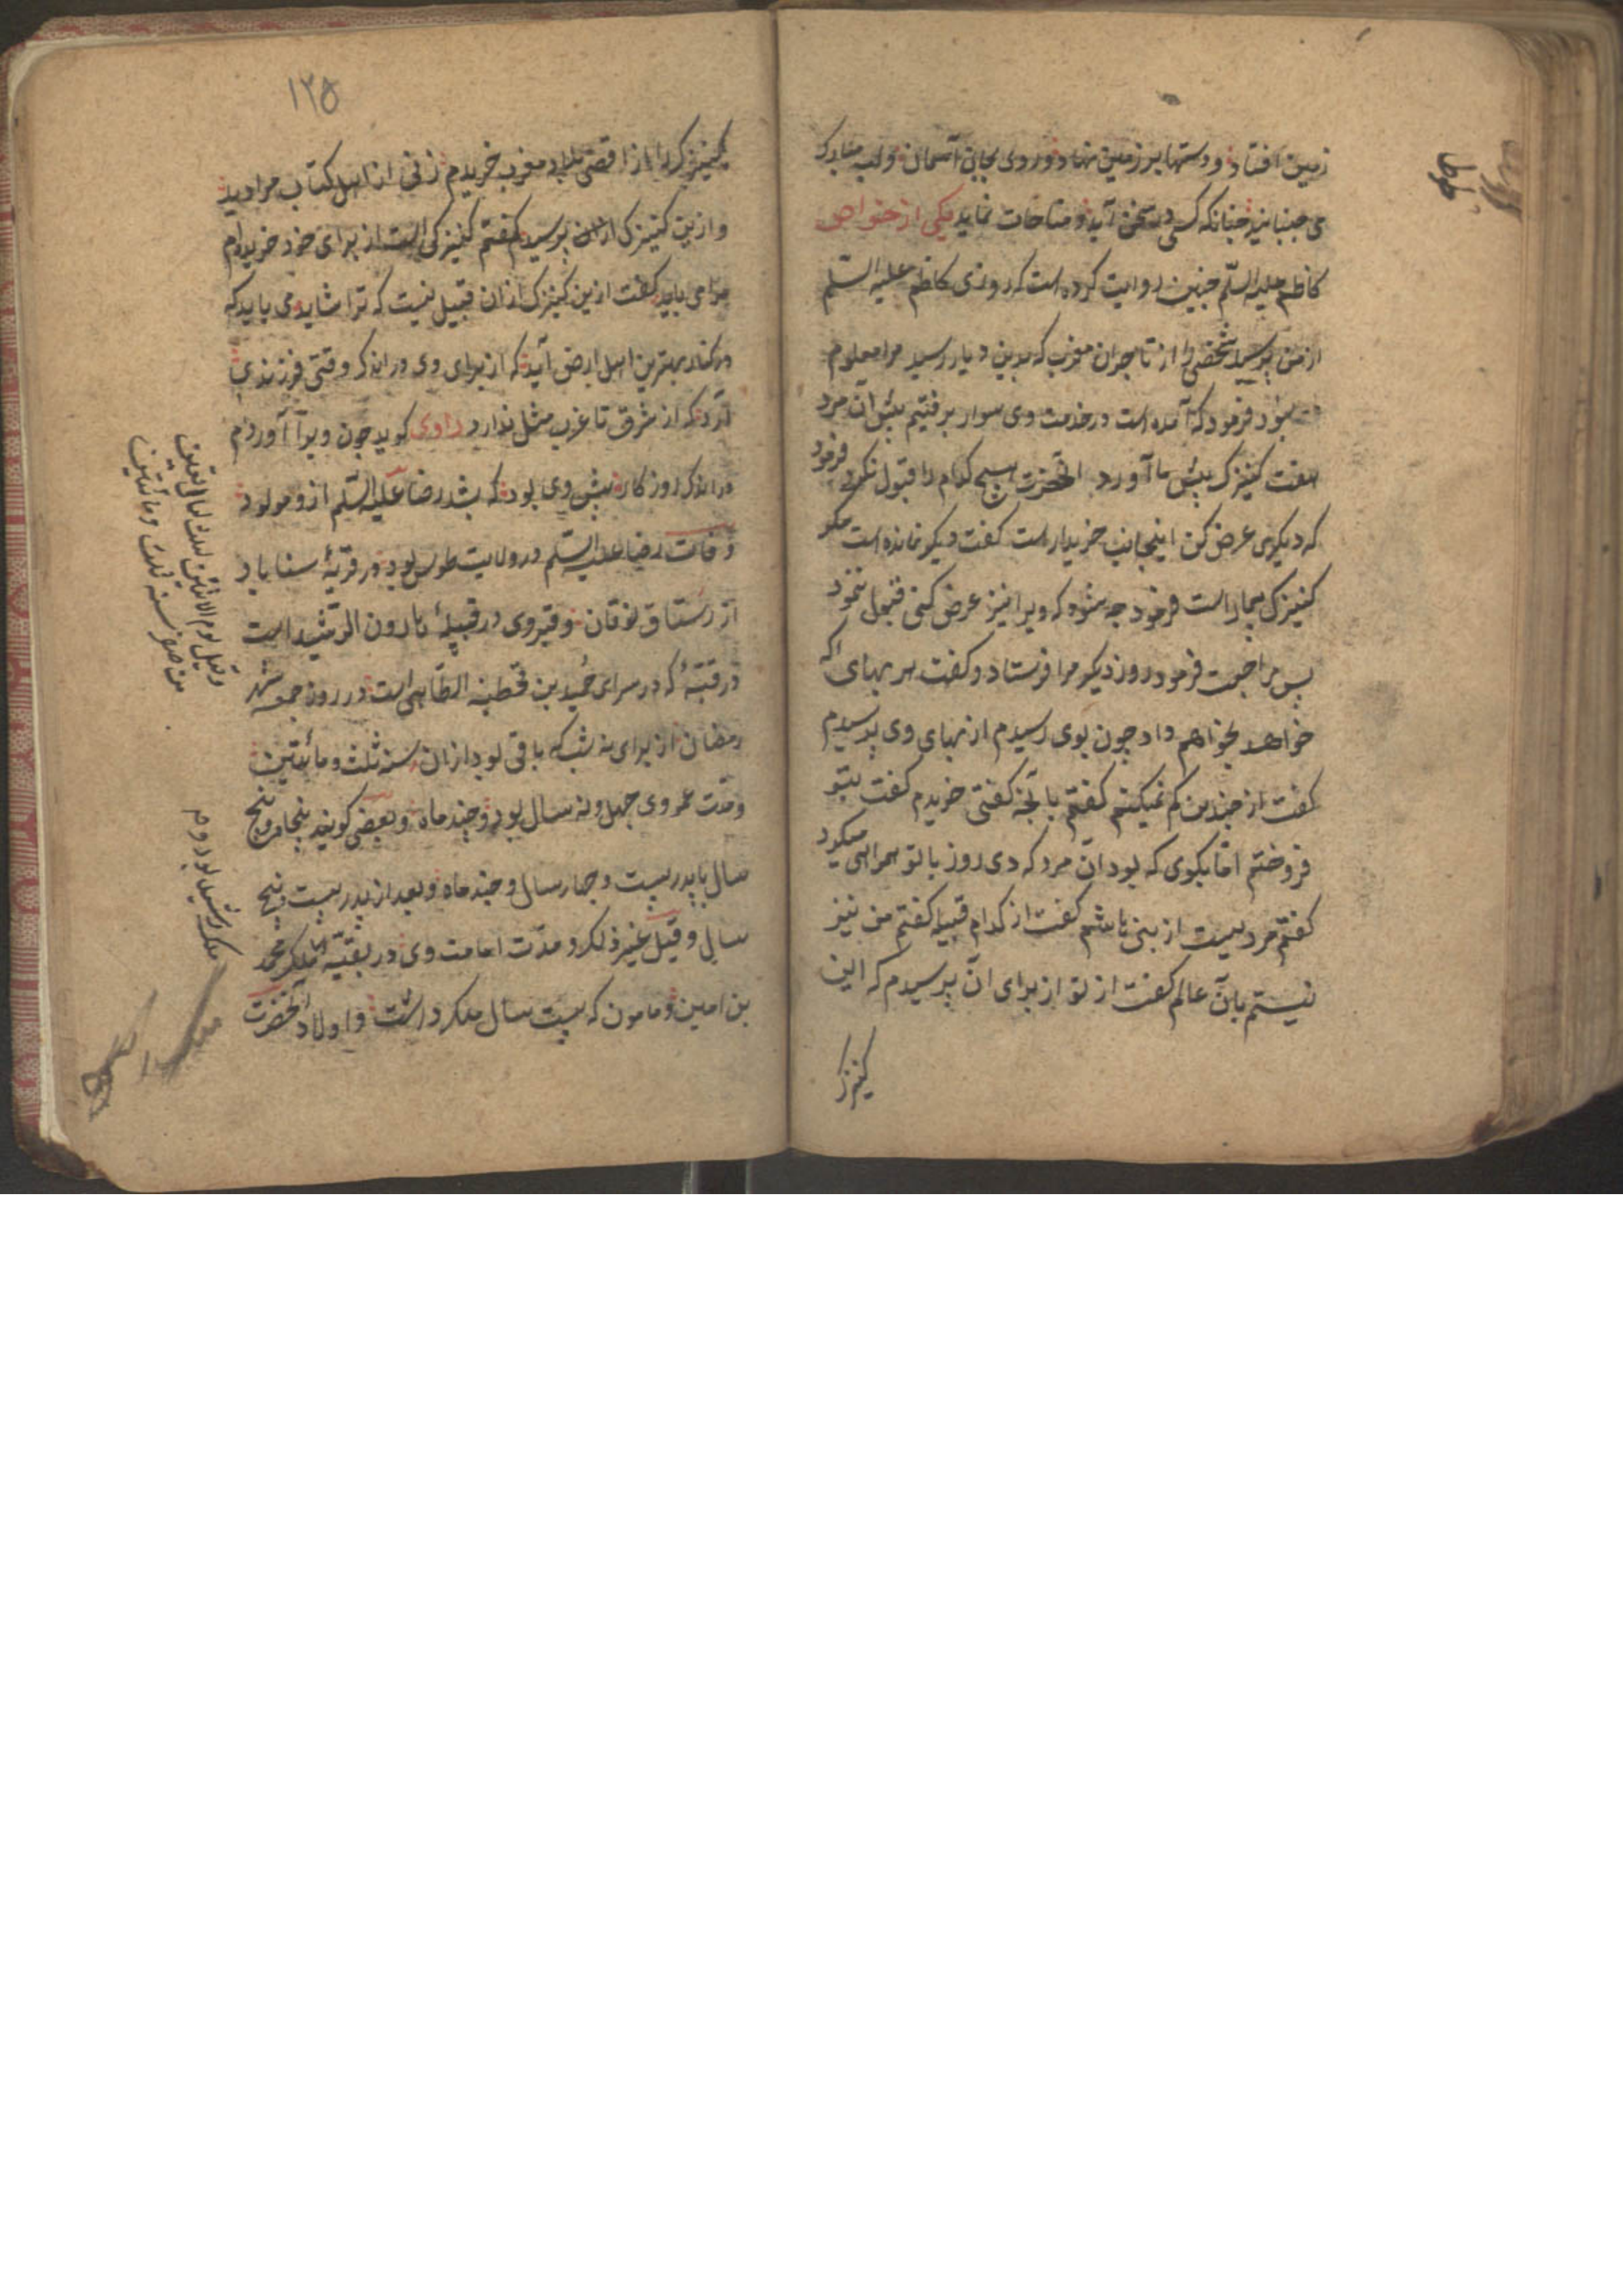 زمین افتاد و دستها بر زمین نهاد و روی بجانب آسمان و لب مبارک
می جنبانید چنانکه کسی در سخن آید و مناجات نماید یکی از خواص
کاظم علیه السلم چنین روایت کرده است که روزی کاظم علیه السلم
از من پرسید شخصی از تاجران مغرب که بدین دیار رسید مرا معلوم
نبود فرمود که آمده است در خدمت وی سوار برفتیم پیش آن مرد
هفت کنیزک پیش ما آورد آنحضرت هیچ کدام را قبول نکرد فرمود
که دیگری عرض کن اینجانب خریدار است کفت دیکر نمانده است مکر
کنیزکی بیمار است فرمود چه شود که ویرا نیز عرض کنی قبول ننمود
پس مراجعت فرمود روز دیکر مرا فرستاد و کفت هر بهای که
خواهد بخواهم داد چون بوی رسیدم از بهای وی پرسیدم
کفت از چندین کم نمیکنم کفتم بآنچه کفتی خریدم کفت بتو
فروختم اما بکوی که بود آن مرد که دی روز با تو همراهی میکرد
کفتم مردیست از بنی هاشم کفت از کدام قبیله کفتم من نیز
نیستم بآن عالم کفت از تو از برای آن پرسیدم که این
کنیزک
۱۲۵
کنیزک را از اقصی بلاد مغرب خریدم زنی از اهل کتاب مرا دید
و ازین کنیزک پرسید کفتم کنیزکی است از برای خود خریده‌ام
مرا می باید کفت ازین کنیزک از آن قبیل نیست که ترا شاید می باید که
در کنار بهترین اهل ارض آید که از برای وی در اندک وقتی فرزندی
آرد که از شرق تا غرب مثل ندارد راوی کوید چون ویرا آوردم
در اندک روزکار پیش وی بود که بشد رضا علیه السلم ازو مولود
وفات رضا علیه السلم در ولایت طوس بود در قریهٔ سناباد
از رستاق نوقان و قبر وی در قبلهٔ هارون الرشید است
در قبهٔ که در سرای حمید بن قحطبه الطاهی است در روز جمعه شهر
رمضان از برای نه شب که باقی بود از ان سنه ثلث و مائتین
و مدت عمر وی چهل و نه سال بود و چند ماه و بعضی کویند پنجاه و پنج
سال با پدر بیست و چهار سال و چند ماه و بعد از پدر بیست و پنج
سال و قیل غیر ذلک و مدت امامت وی در بقیه ملک محمد
بن امین و مامون که بیست سال ملک داشت و اولاد آنحضرت
وقیل یوم الاثنین لثلث لیال بقین
من صفر سنه ثلث و مائتین
ملک رشید بود و